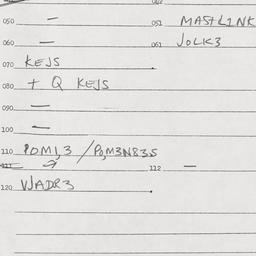 050 — 051 MASTL1NK
060 — 061 JOLK3
070 KEJS
080 + Q KEJS
090 —
100 —
110 POM1,3 / P0,M3N835
111 → 112 —
120 WADR3